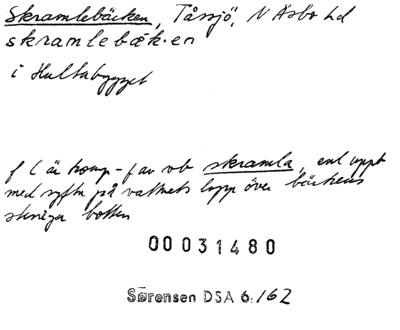 Skramlebäcken, Tåssjö, N Åsbo hd
skramlebæk·en
i Hultabygget
f l är komp-f av vb skramla, enl uppt
med syftn på vattnets lopp över bäckens
steniga botten
00031480
Sørensen DSA 6:162